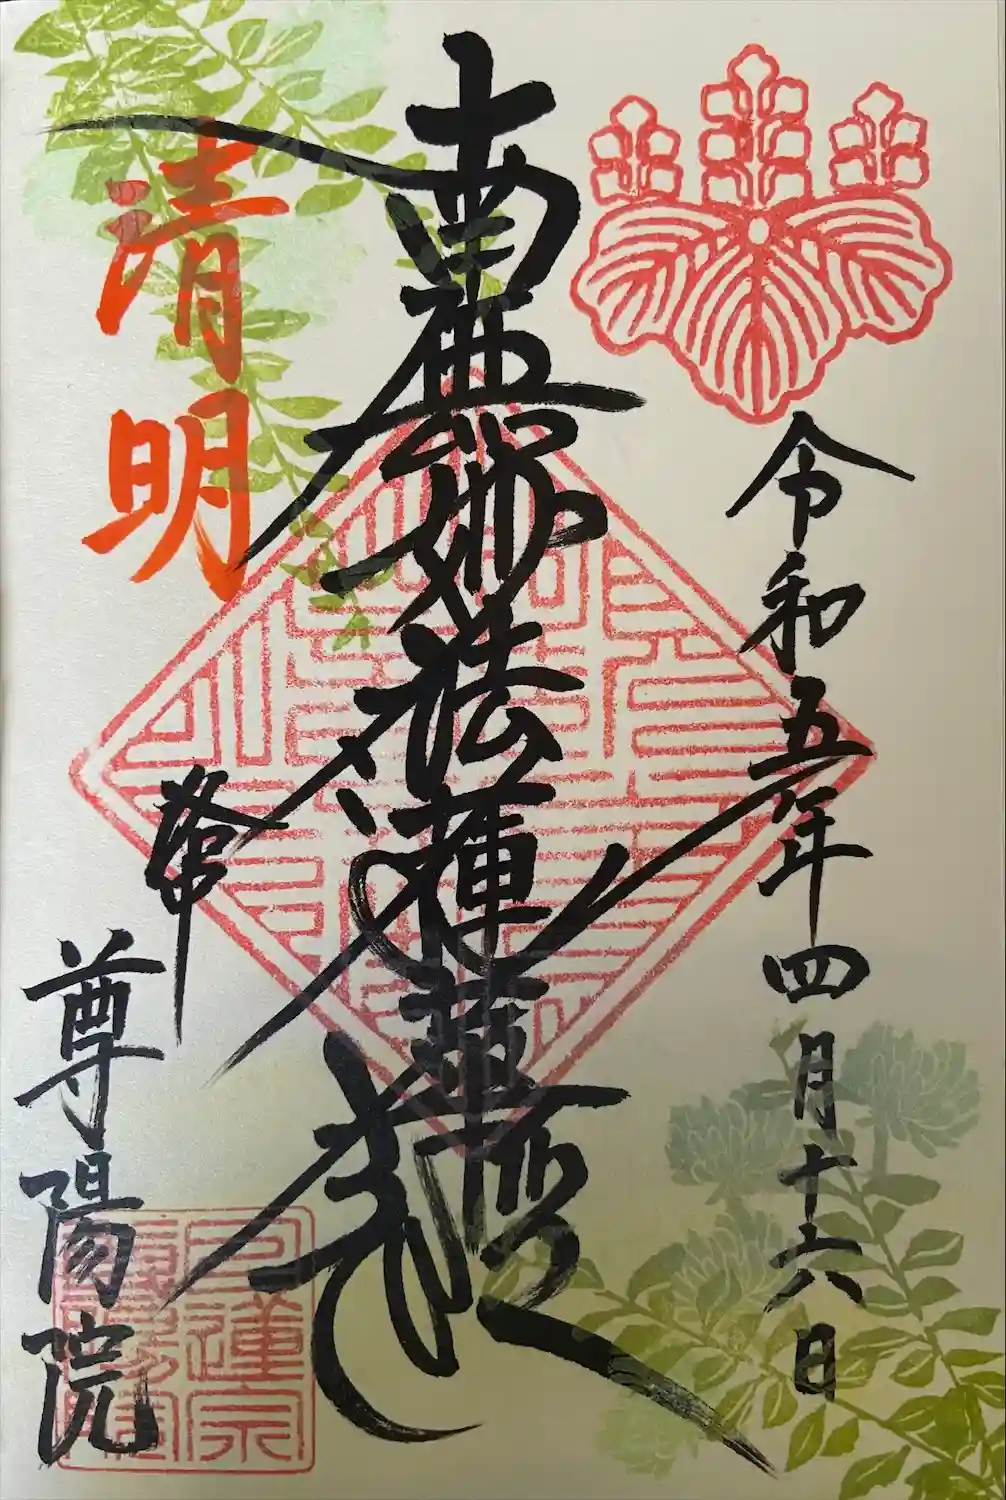 令和五年四月十六日
南無妙法蓮華経
清明
尊陽院
日蓮宗
尊陽院